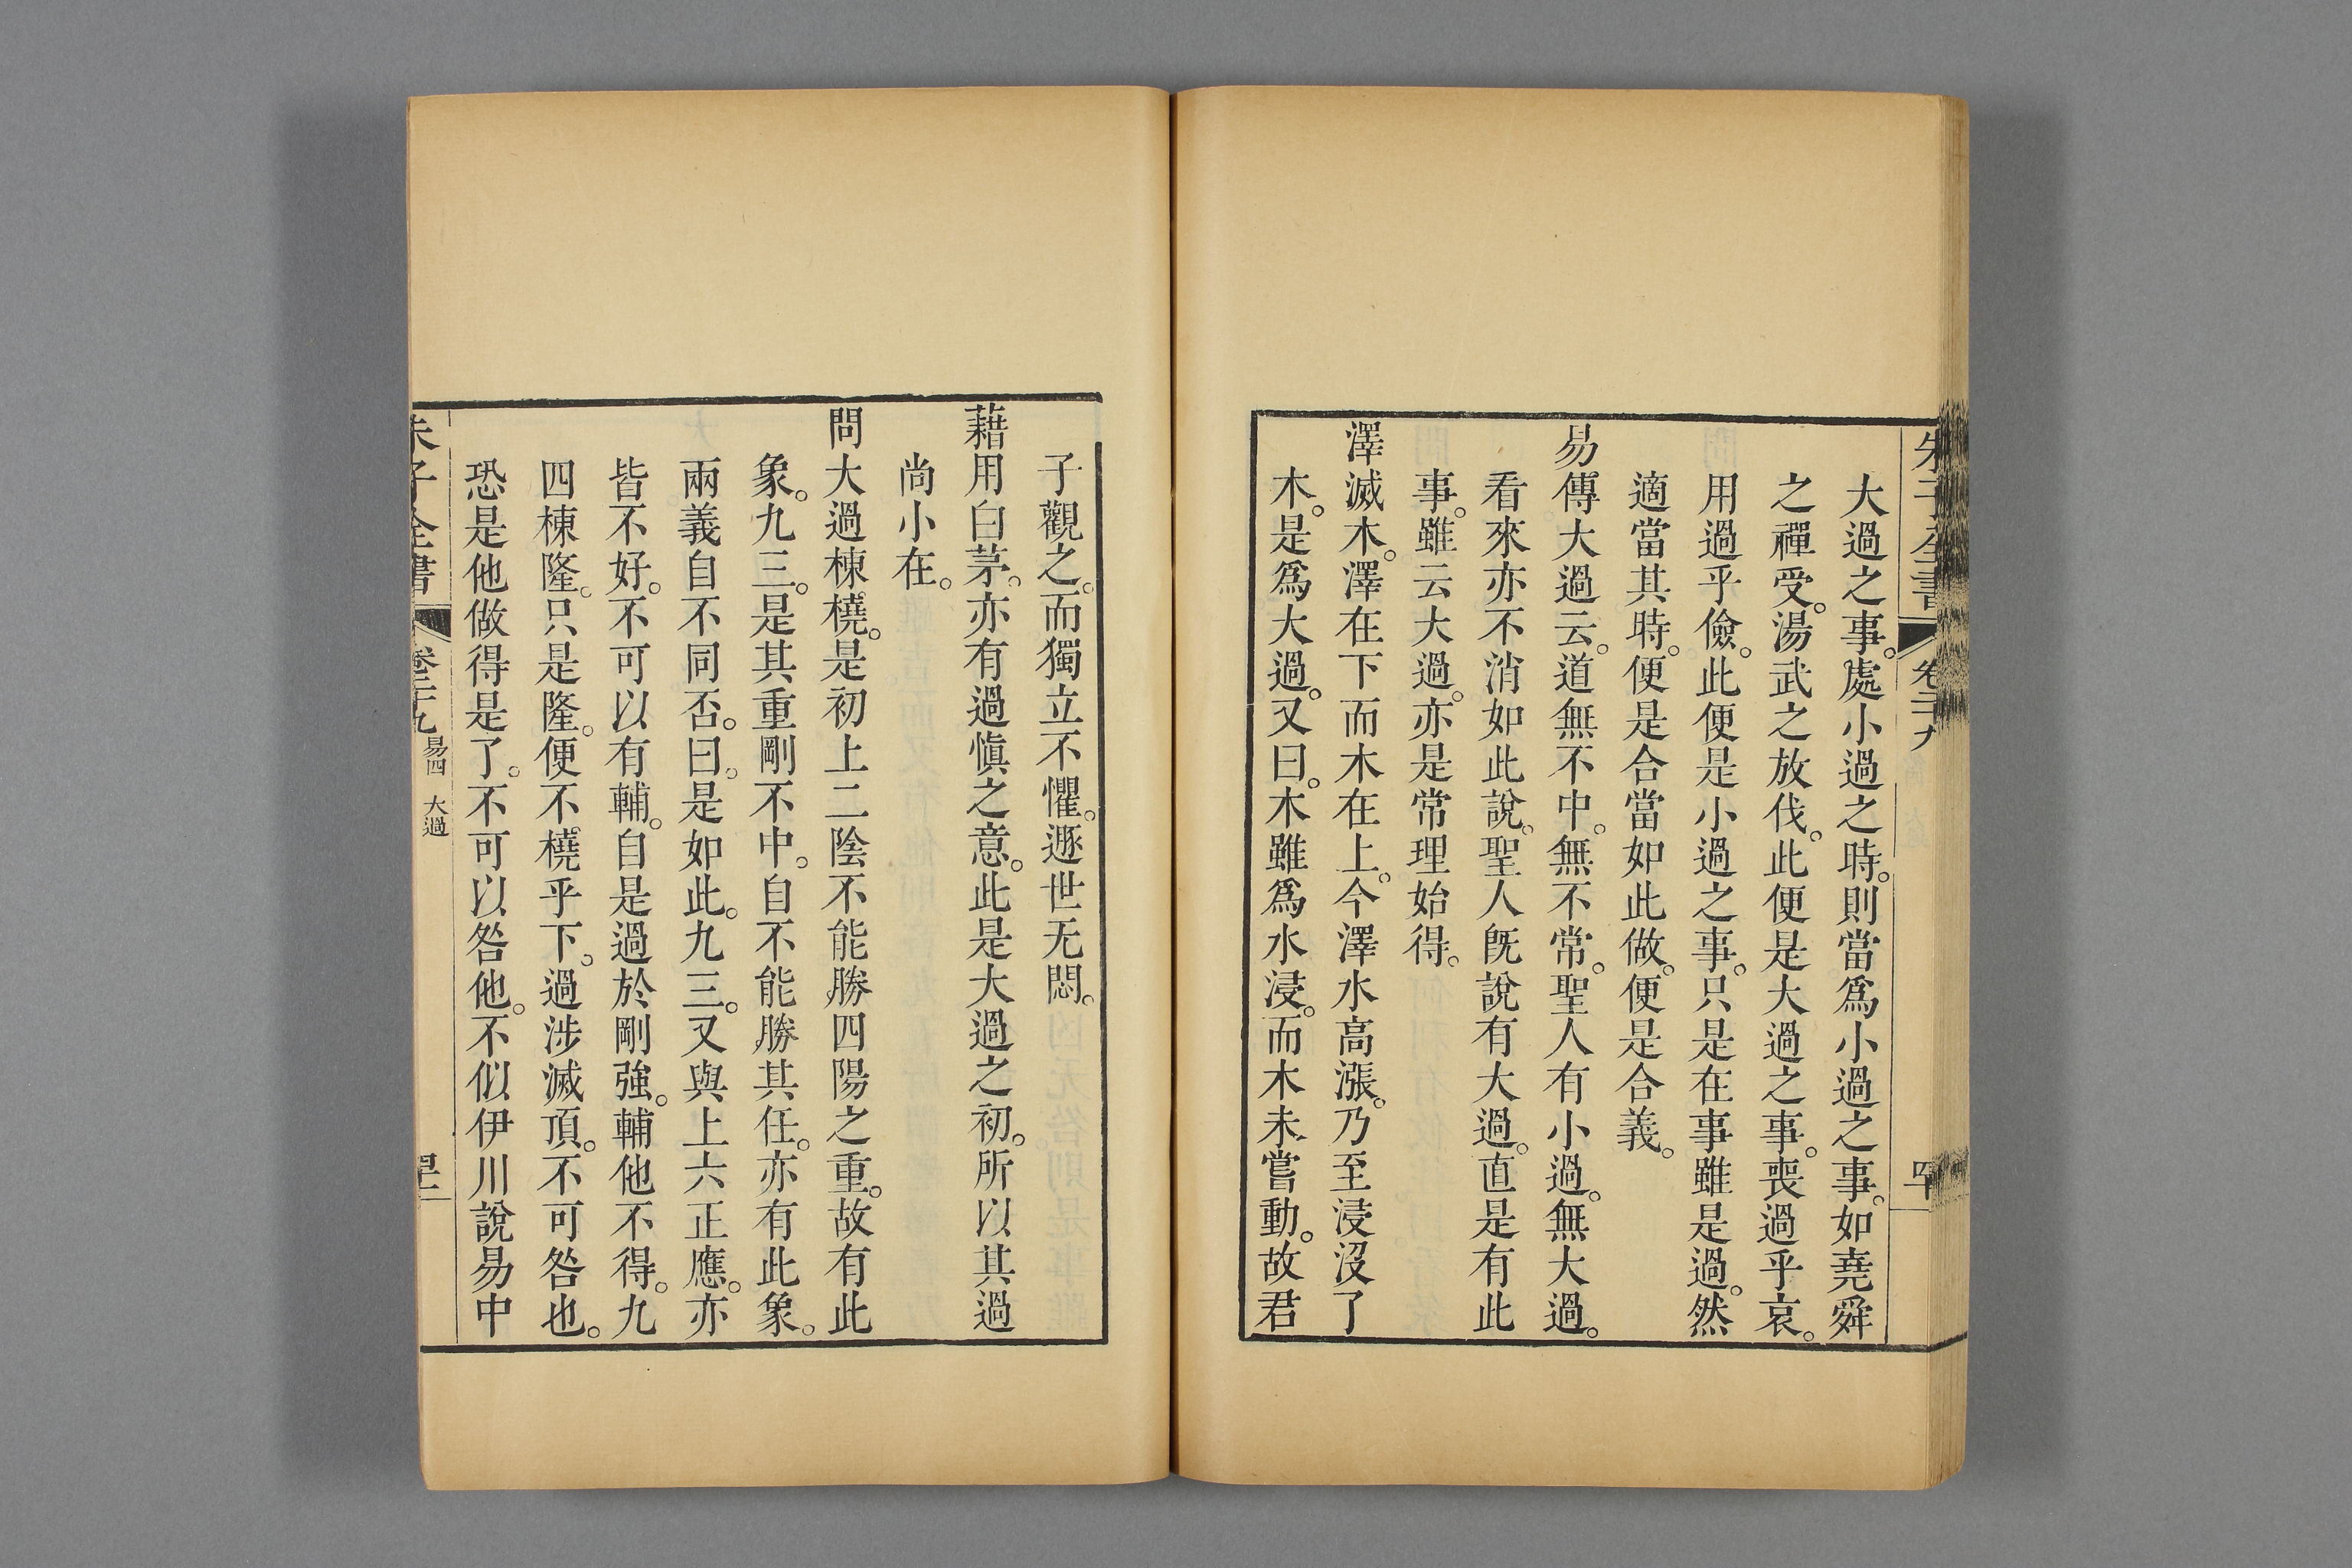 朱子全書 卷二十九 四十
大過之事。處小過之時。則當爲小過之事。如堯舜
之禪受。湯武之放伐。此便是大過之事。喪過乎哀。
用過乎儉。此便是小過之事。只是在事雖是過。然
適當其時。便是合當如此做。便是合義。
易傳大過云。道無不中。無不常。聖人有小過。無大過。
看來亦不消如此說。聖人旣說有大過。直是有此
事。雖云大過。亦是常理始得。
澤滅木。澤在下而木在上。今澤水高漲。乃至浸沒了
木。是爲大過。又曰。木雖爲水浸。而木未嘗動。故君
子觀之。而獨立不懼。遯世无悶。
藉用白茅。亦有過愼之意。此是大過之初。所以其過
尚小在。
問大過棟橈。是初上二陰不能勝四陽之重。故有此
象。九三。是其重剛不中。自不能勝其任。亦有此象。
兩義自不同否。曰。是如此。九三。又與上六正應。亦
皆不好。不可以有輔。自是過於剛強。輔他不得。九
四棟隆。只是隆。便不橈乎下。過涉滅頂。不可咎也。
恐是他做得是了。不可以咎他。不似伊川說易中
朱子全書 卷二十九 易四 大過